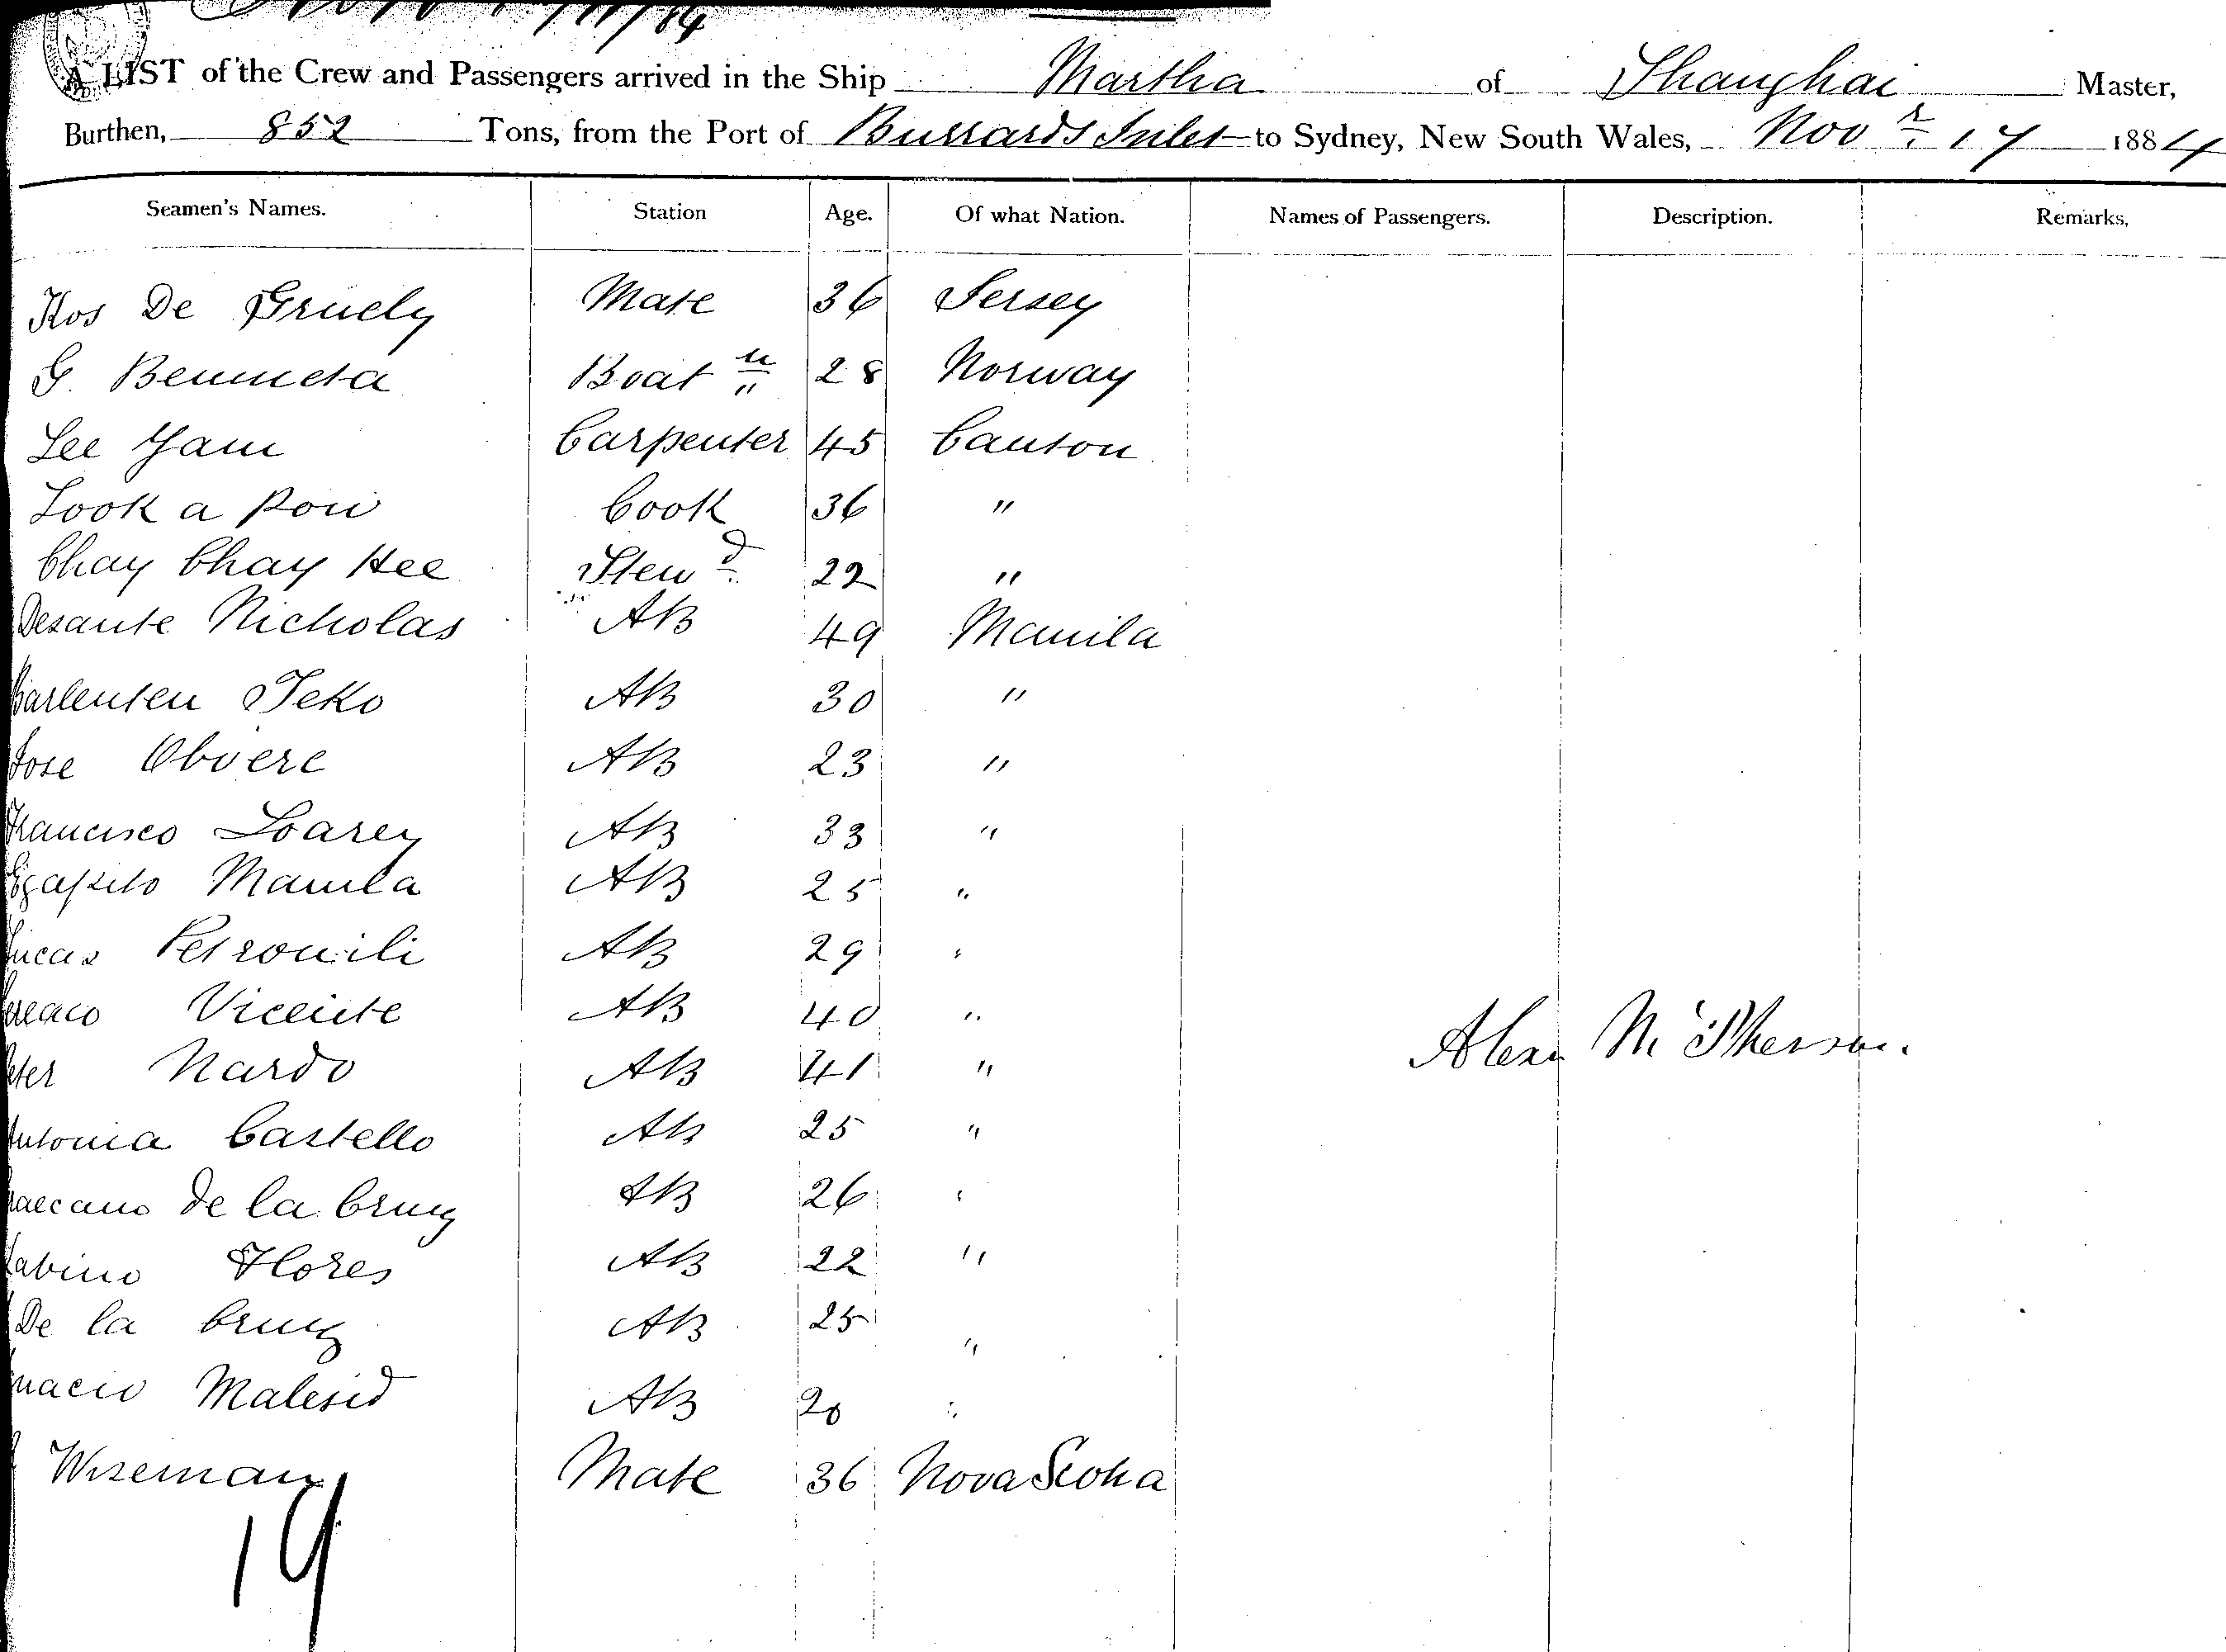 /11/84
A LIST of the Crew and Passengers arrived in the Ship Martha of Shanghai Master,
Burthen, 852 Tons, from the Port of Burrards Inlet to Sydney, New South Wales, Novr 17 1884
Seamen's Names. Station Age. Of what Nation. Names of Passengers. Description. Remarks,
De Gruely Mate 36 Jersey
G. Boatn 28 Norway
Lee Yam Carpenter 45 Canton
Look a Pow Cook 36 "
Chay Chay Hee Stewd 22 "
Desante Nicholas AB 49 Manila
Teko AB 30 "
Jose Obvere AB 23 "
Francisco Loarey AB 33 "
Egapito Manila AB 25 "
Lucas Petronili AB 29 "
Vicente AB 40 "
Alexr McPherson.
eter Nardo AB 41 "
Antonia Castello AB 25 "
de la Cruz AB 26 "
abino Flores AB 22 "
De la Cruz AB 25 "
nacio Malesid AB 20 "
Wiseman Mate 36 Nova Scotia
19